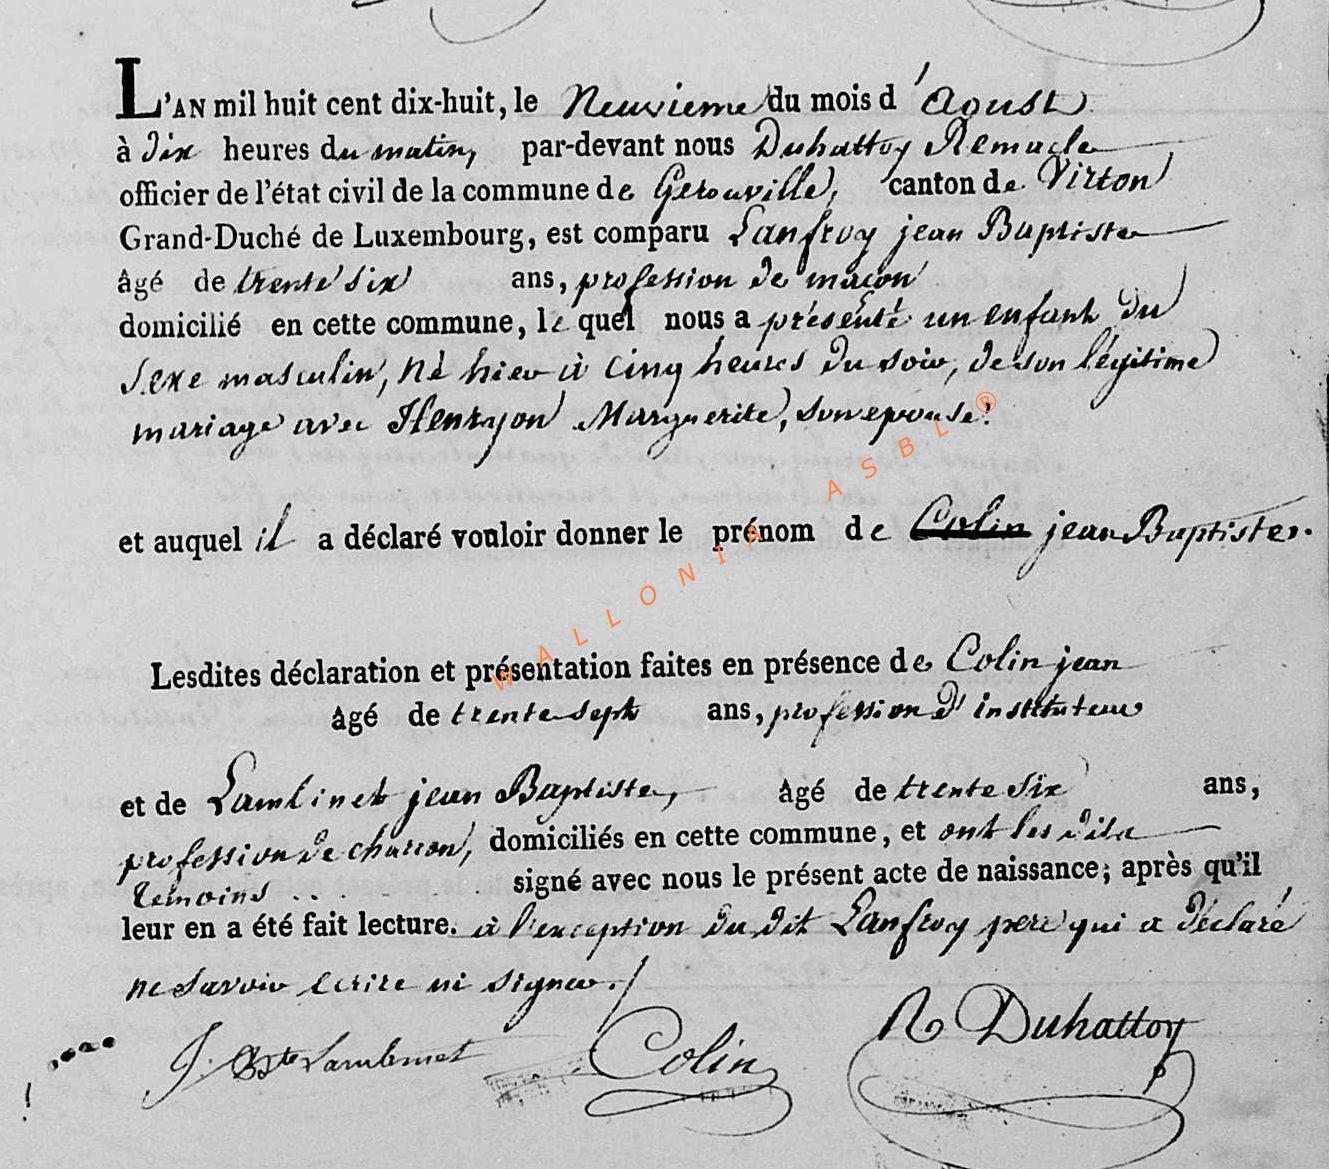 L'AN mil huit cent dix-huit, le Neuvieme du mois d'Aoust
à dix heures du matin, par-devant nous Duhattoy Remacle
officier de l'état civil de la commune de Gerouville, canton de Virton
Grand-Duché de Luxembourg, est comparu Lanfroy jean Baptiste
âgé de trente six ans, profession de maçon
domicilié en cette commune, le quel nous a présenté un enfant du
Sexe masculin, né hier à cinq heures du soir, de son légitime
mariage avec Henryon Marguerite, son epouse.
et auquel il a déclaré vouloir donner le prénom de Colin jean Baptiste.
Lesdites déclaration et présentation faites en présence de Colin jean
âgé de trente sept ans, profession d'instituteur
et de Lamlinet jean Baptiste, âgé de trente six ans,
profession de charron, domiciliés en cette commune, et ont les dits
témoins . . . signé avec nous le présent acte de naissance; après qu'il
leur en a été fait lecture. à l'exception du dit Lanfroy pere qui a déclaré
ne savoir ecrire ni signer./
J. Bste Lamlinet Colin R Duhattoy
WALLONIA ASBL ®